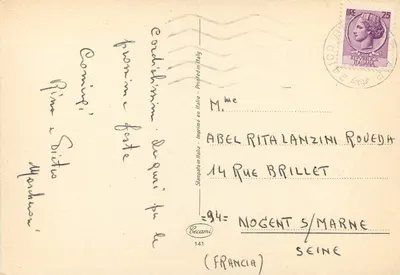 Cordialissimi Auguri per le
prossime feste
Coniugi
Rina e Pietro
Stampata in Italia - Imprimé en Italie - Printed in Italy
Cecami
141
25
M.me
ABEL RITA LANZINI ROVEDA
14 RUE BRILLET
=94= NOGENT S/MARNE
SEINE
(FRANCIA)